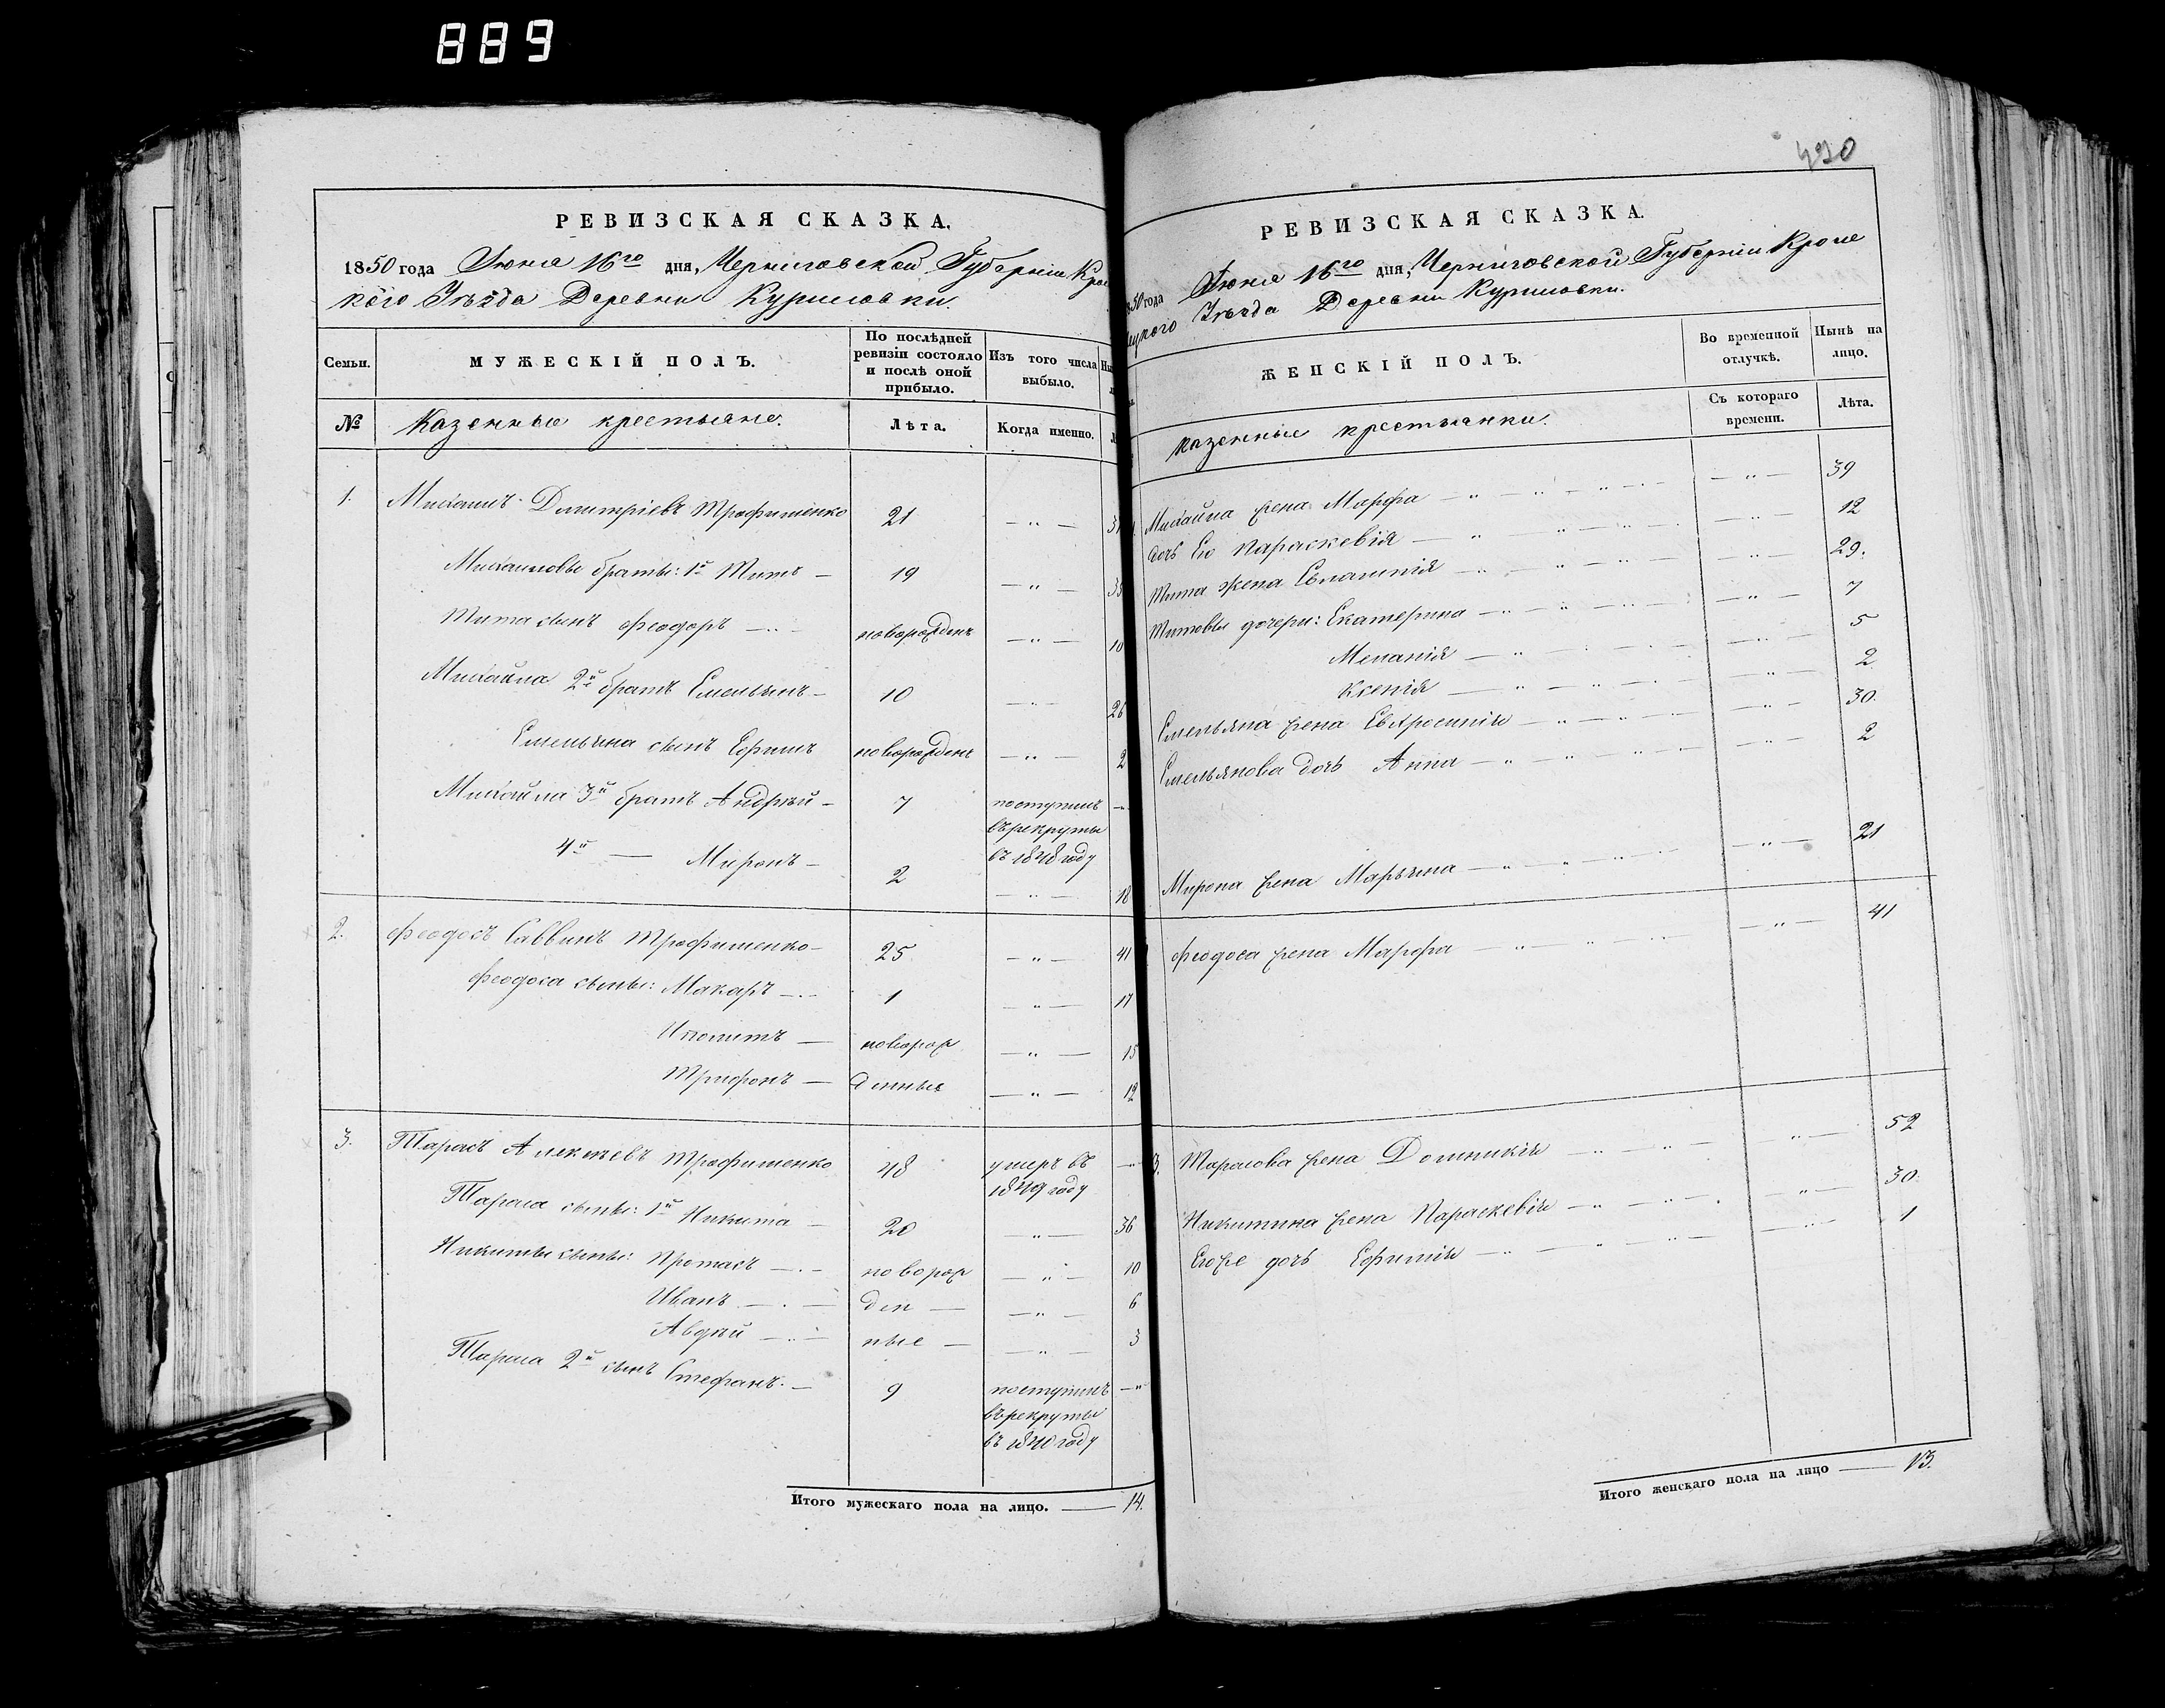 889
РЕВИЗСКАЯ СКАЗКА.
1850 года Іюня 16го дня, Черниговской Губерніи Крол
кого Уѣзда Деревни Куриловки.
Семьи. МУЖЕСКІЙ ПОЛЪ. По послѣдней ревизіи состояло и послѣ оной прибыло. Изъ того числа выбыло.
№ Казенные крестьяне. Лѣта. Когда именно.
1. Михаилъ Дмитріевъ Трофименко 21 — „ —
Михаиловы братья: 1й Титъ — 19 — „ — 35
Тита сынъ Феодоръ — „ — новорожденъ — „ — 10
Михайла 2й братъ Емельянъ — 10 — „ — 26
Емельяна сынъ Ефимъ новорожденъ — „ — 2
Михайла 3й братъ Андрѣй — 7 поступилъ
въ рекруты
въ 1848 году
4й — Миронъ — 2 — „ — 18
2. Феодосъ Саввинъ Трофименко — 25 — „ — 41
Феодоса сыны: Макаръ — „ — 1 — „ — 17
Иполитъ — новорож — „ — 15
Трифонъ — денные — „ — 12
3. Тарасъ Алексѣевъ Трофименко 48 умеръ въ — „
1849 году
Тараса сыны: 1й Никита — 20 — „ — 36
Никиты сыны: Протасъ — „ — новорож — „ — 10
Иванъ — „ — ден — — „ — 6
Авдѣй — „ — ные — — „ — 3
Тараса 2й сынъ Стефанъ — 9 поступилъ — „
въ рекруты
въ 1840 году
Итого мужескаго пола на лицо. — 14.
490
РЕВИЗСКАЯ СКАЗКА.
50 года Іюня 16го дня, Черниговской Губерніи Кроле
Уѣзда Деревни Куриловки.
ЖЕНСКІЙ ПОЛЪ. Во временной отлучкѣ. Нынѣ на лицо.
Казенные крестьянки. Съ котораго времени. Лѣта.
Михайла жена Марфа — „ — 39
дочь Его Параскевія — „ — 12
Тита жена Евлампія — „ — 29.
Титовы дочери: Екатерина — „ — 7
Меланія — „ — 5
Ксенія — „ — 2
Емельяна жена Евфросинія — „ — 30.
Емельянова дочь Анна — „ — 2
Мирона жена Марьяна — „ — 21
Феодоса жена Марфа — „ — 41
3. Тарасова жена Домникія — „ — 52
Никитина жена Параскевія — „ — 30.
Егоже дочь Ефимія — „ — 1
Итого женскаго пола на лицо — 13.